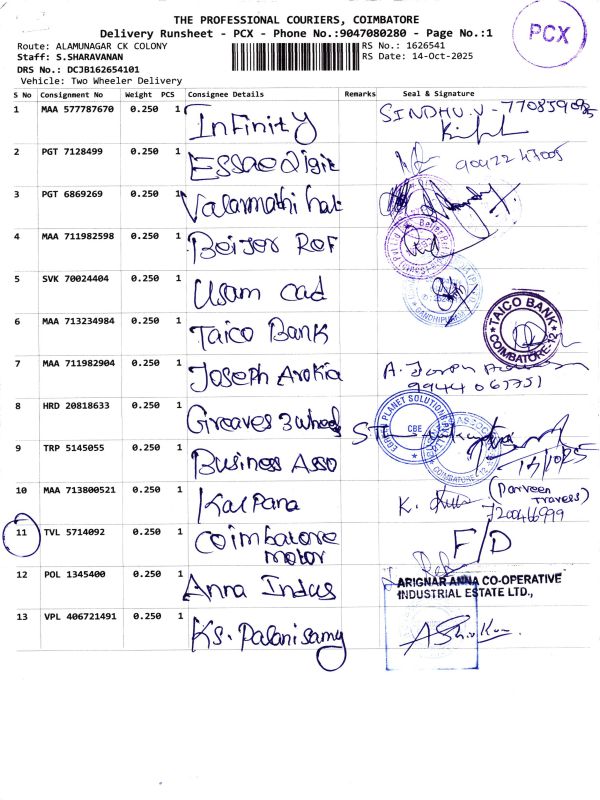 THE PROFESSIONAL COURIERS, COIMBATORE
Delivery Runsheet - PCX - Phone No.:9047080280 - Page No.:1
PCX
Route: ALAMUNAGAR CK COLONY
RS No.: 1626541
Staff: S.SHARAVANAN
RS Date: 14-Oct-2025
DRS No.: DCJB162654101
Vehicle: Two Wheeler Delivery
S No Consignment No Weight PCS Consignee Details Remarks Seal & Signature
1 MAA 577787670 0.250 1 Infinity SINDHU.V-
2 PGT 7128499 0.250 1 Essae Digit
3 PGT 6869269 0.250 1 Valarmathi
4 MAA 711982598 0.250 1 Beijer Ref
5 SVK 70024404 0.250 1 Usam Cad
6 MAA 713234984 0.250 1 Taico Bank
TAICO BANK
COIMBATORE-12
7 MAA 711982904 0.250 1 Joseph Arokia A.
8 HRD 20818633 0.250 1 Greaves 3 wheel
EARTH PLANET SOLUTIONS
CBE
9 TRP 5145055 0.250 1 Business Asso
COIMBATORE-12
10 MAA 713800521 0.250 1 Kalpana K. (Parveen
Travess)
11 TVL 5714092 0.250 1 Coimbatore
motor F/D
12 POL 1345400 0.250 1 Anna Indus
ARIGNAR ANNA CO-OPERATIVE
INDUSTRIAL ESTATE LTD.,
13 VPL 406721491 0.250 1 KS. Palanisamy